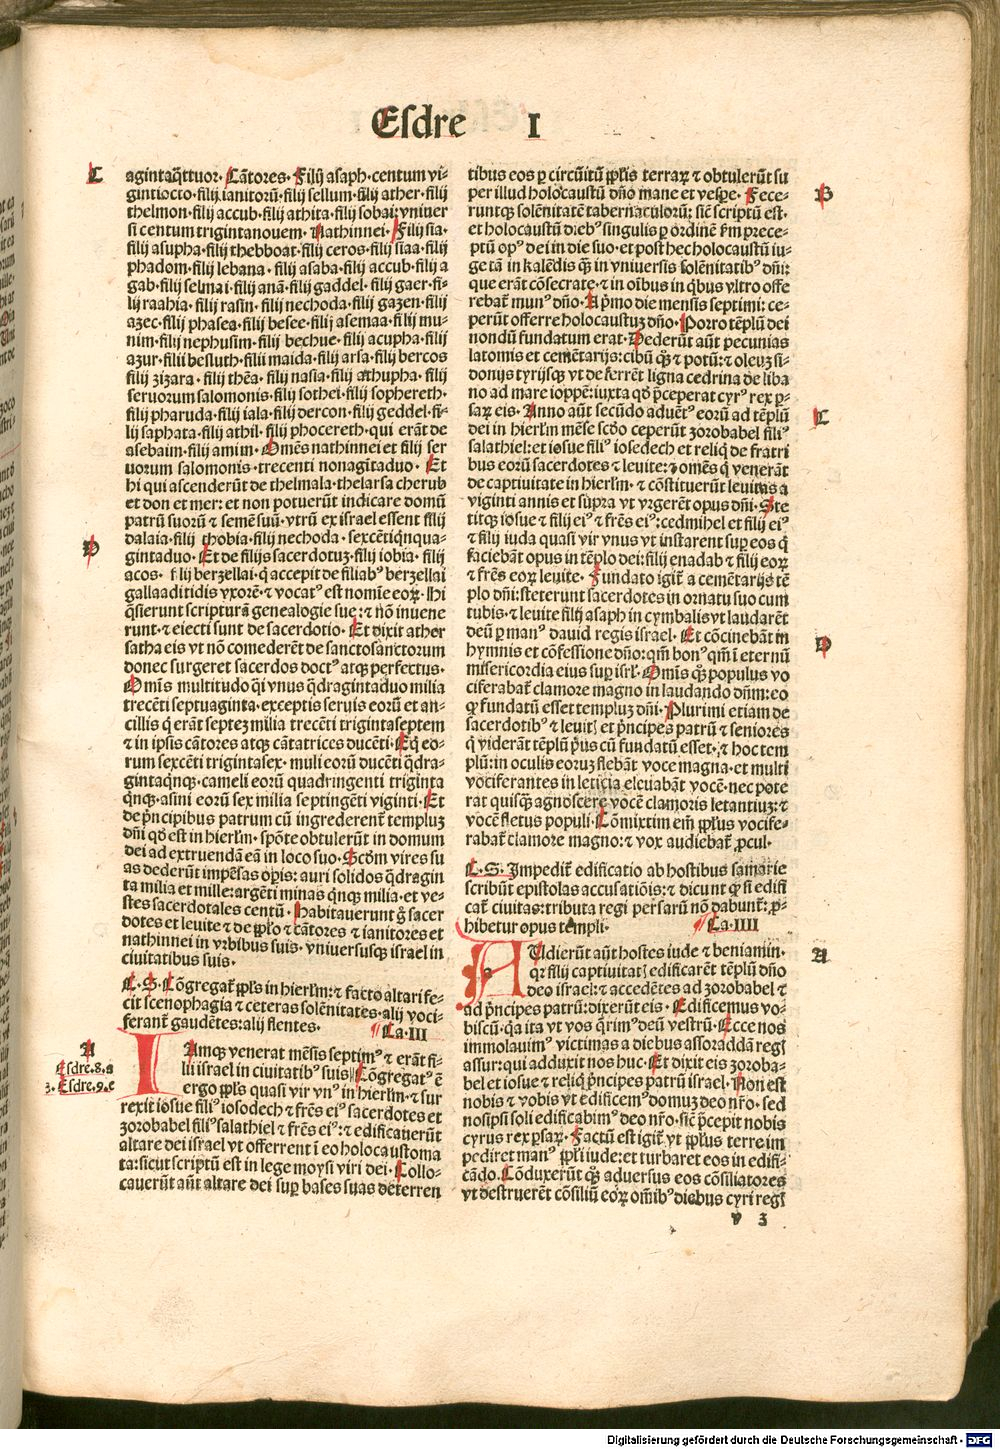 Esdre I
C
agintaq̃ttuor. Cãtores. Filij asaph.centum vi-
gintiocto.filij ianitorũ.filij sellum.filij ather.filij
thelmon.filij accub.filij athita.filij sobai:vniuer
si centum trigintanouem. Nathinnei. Filij sia.
filij asupha.filij thebboat.filij ceros.filij siaa.filij
phadom.filij lebana.filij asaba.filij accub.filij a
gab.filij selmai.filij anã.filij gaddel.filij gaer.fi-
lij raahia.filij rasin.filij nechoda.filij gazen.filij
azec.filij phasea.filij besee.filij asemaa.filij mu-
nim.filij nephusim.filij bechue.filij acupha.filij
azur.filij besluth.filij maida.filij arsa.filij bercos
filij zizara.filij thẽa.filij nasia.filij athupha.filij
seruorum salomonis.filij sothei.filij sophereth.
filij pharuda.filij iala.filij dercon.filij geddel.fi-
lij saphata.filij athil.filij phocereth.qui erãt de
asebaim.filij amim. Omẽs nathinnei et filij ser
uorum salomonis.trecenti nonagitaduo. Et
hi qui ascenderũt de thelmala.thelarsa cherub
et don et mer: et non potuerũt indicare domũ
patrũ suorũ ⁊ semẽ suũ.vtrũ ex israel essent filij
dalaia.filij thobia.filij nechoda.sexcẽtiqnqua-
D
gintaduo. Et de filijs sacerdotuz.filij iobia.filij
acos. filij berzellai.q̃ accepit de filiabꝰ berzellai
galaaditidis vxorẽ.⁊ vocatꝰ est nomie eoꝝ. Hi
q̃sierunt scripturã genealogie sue:⁊ nõ inuene
runt.⁊ eiecti sunt de sacerdotio. Et dixit ather
satha eis vt nõ comederẽt de sanctosanctorum
donec surgeret sacerdos doctꝰ atqꝫ perfectus.
Omĩs multitudo q̃i vnus q̃dragintaduo milia
trecẽti septuaginta.exceptis seruis eorũ et an-
cillis q̃ erãt septez milia trecẽti trigintaseptem
⁊ in ipsis cãtores atqꝫ cãtatrices ducẽti. Eq̃ eo-
rum sexcẽti trigintasex.muli eorũ ducẽti q̃dra-
gintaqnqꝫ.cameli eorũ quadringenti triginta
q̃nqꝫ.asini eorũ sex milia septingẽti viginti. Et
de p̃ncipibus patrum cũ ingrederent̃ templuz
dñi qđ est in hierłm.spõte obtulerũt in domum
dei ad extruendã eã in loco suo. Scđm vires su
as dederũt impẽsas oꝑis: auri solidos q̃dragin
ta milia et mille:argẽti minas q̃nqꝫ milia.et ve-
stes sacerdotales centũ. Habitauerunt g̃ sacer
dotes et leuite ⁊ de ppło ⁊ cãtores ⁊ ianitores et
nathinnei in vrbibus suis.vniuersusqꝫ israel in
ciuitatibus suis.
C. S. Cõgregat̃ ppłs in hierłm:⁊ facto altari fe-
cit scenophagia ⁊ ceteras solẽnitates.alij voci-
ferant̃ gaudẽtes:alij flentes. ¶ Ca.III
A
Esdre.8.a
3. Esdre.9.e
IAmqꝫ venerat mẽsis septimꝰ ⁊ erãt fi-
lij israel in ciuitatibꝰ suis. Cõgregatꝰ ẽ
ergo ppłs quasi vir vnꝰ in hierłm.⁊ sur
rexit iosue filiꝰ iosodech ⁊ fr̃es eiꝰ sacerdotes et
zorobabel filiꝰ salathiel ⁊ fr̃es eiꝰ:⁊ edificauerũt
altare dei israel vt offerrent ĩ eo holocaustoma
ta:sicut scriptũ est in lege moysi viri dei. Collo-
cauerũt aũt altare dei suꝑ bases suas deterren
tibus eos ꝑ circũitũ ppłis terraꝝ ⁊ obtulerũt su
B
per illud holocaustũ dño mane et vesꝑe. Fece-
runtqꝫ solẽnitatẽ tabernaculorũ: sic̃ scriptũ est.
et holocaustũ diebꝰ singulis ꝑ ordinẽ fm prece-
ptũ opꝰ dei in die suo.et post hec holocaustũ iu-
ge tã in kalẽdis q̃ in vniuersis solẽnitatibꝰ dñi:
que erãt cõsecrate.⁊ in oĩbus in q̃bus vltro offe
rebat̃ munꝰ dño. A pͥmo die mensis septimi: ce-
perũt offerre holocaustuz dño. Porro tẽplũ dei
nondũ fundatum erat. Dederũt aũt pecunias
latomis et cemẽtarijs: cibũ q̃ꝫ ⁊ potũ:⁊ oleuz si-
donijs tyrijsqꝫ vt deferrẽt ligna cedrina de liba
no ad mare ioppẽ: iuxta qđ p̃ceperat cyrꝰ rex ꝑ-
C
saꝝ eis. Anno aũt secũdo aduẽtꝰ eorũ ad tẽplũ
dei in hierłm mẽse scđo ceperũt zorobabel filiꝰ
salathiel: et iosue filiꝰ iosedech et reliq̃ de fratri
bus eorũ sacerdotes ⁊ leuite:⁊ omẽs q̃ venerãt
de captiuitate in hierłm.⁊ cõstituerũt leuitas a
viginti annis et supra vt vrgerẽt opus dñi. Ste
titqꝫ iosue ⁊ filij eiꝰ ⁊ fr̃es eiꝰ:cedmihel et filij eiꝰ
⁊ filij iuda quasi vir vnus vt instarent suꝑ eos q̃
faciebãt opus in tẽplo dei: filij enadab ⁊ filij eoꝝ
⁊ fr̃es eoꝝ leuite. Fundato igit̃ a cemẽtarijs tẽ
plo dñi: steterunt sacerdotes in ornatu suo cum
tubis.⁊ leuite filij asaph in cymbalis vt laudarẽt
D
deũ ꝑ manꝰ dauid regis israel. Et cõcinebãt in
hymnis et cõfessione dño: qm̃ bonꝰ qm̃ ĩ eternũ
misericordia eius suꝑ isrł. Omĩs q̃ꝫ populus vo
ciferabat̃ clamore magno in laudando dñm: eo
ꝙ fundatũ esset templuz dñi. Plurimi etiam de
sacerdotibꝰ ⁊ leuitꝭ et p̃ncipes patrũ ⁊ seniores
q̃ viderãt tẽplũ pͥus cũ fundatũ esset.⁊ hoc tem
plũ: in oculis eoruz flebãt voce magna.et multi
vociferantes in leticia eleuabãt vocẽ.nec pote
rat quisqꝫ agnoscere vocẽ clamoris letantiuz:⁊
vocẽ fletus populi. Cõmixtim em̃ ppłus vocife-
rabat̃ clamore magno:⁊ vox audiebat̃ ꝓcul.
C. S. Impedit̃ edificatio ab hostibus samarie
scribũt epistolas accusatiõis:⁊ dicunt ꝙ si edifi
cat̃ ciuitas: tributa regi persarũ nõ dabunt̃: ꝓ-
hibetur opus templi. ¶ Ca.IIII
A
AUdierũt aũt hostes iude ⁊ beniamin.
qꝛ filij captiuitatꝭ edificarẽt tẽplũ dño
deo israel:⁊ accedẽtes ad zorobabel ⁊
ad p̃ncipes patrũ: dixerũt eis. Edificemus vo-
biscũ.q̃a ita vt vos q̃rimꝰ deũ vestrũ. Ecce nos
immolauimꝰ victimas a diebus assoraddã regꝭ
assur: qui adduxit nos huc. Et dixit eis zoroba-
bel et iosue ⁊ reliq̃ p̃ncipes patrũ israel. Non est
nobis ⁊ vobis vt edificemꝰ domuz deo nr̃o.sed
nosipsi soli edificabimꝰ deo nr̃o.sic̃ p̃cepit nobis
cyrus rex ꝑsaꝝ. Factũ est igit̃ vt ppłus terre im
pediret manꝰ ppłi iude: et turbaret eos in edifi-
cãdo. Cõduxerũt q̃ꝫ aduersus eos cõsiliatores
vt destruerẽt cõsiliũ eoꝝ om̃ibꝰ diebus cyri regꝭ
v 3
Digitalisierung gefördert durch die Deutsche Forschungsgemeinschaft - DFG